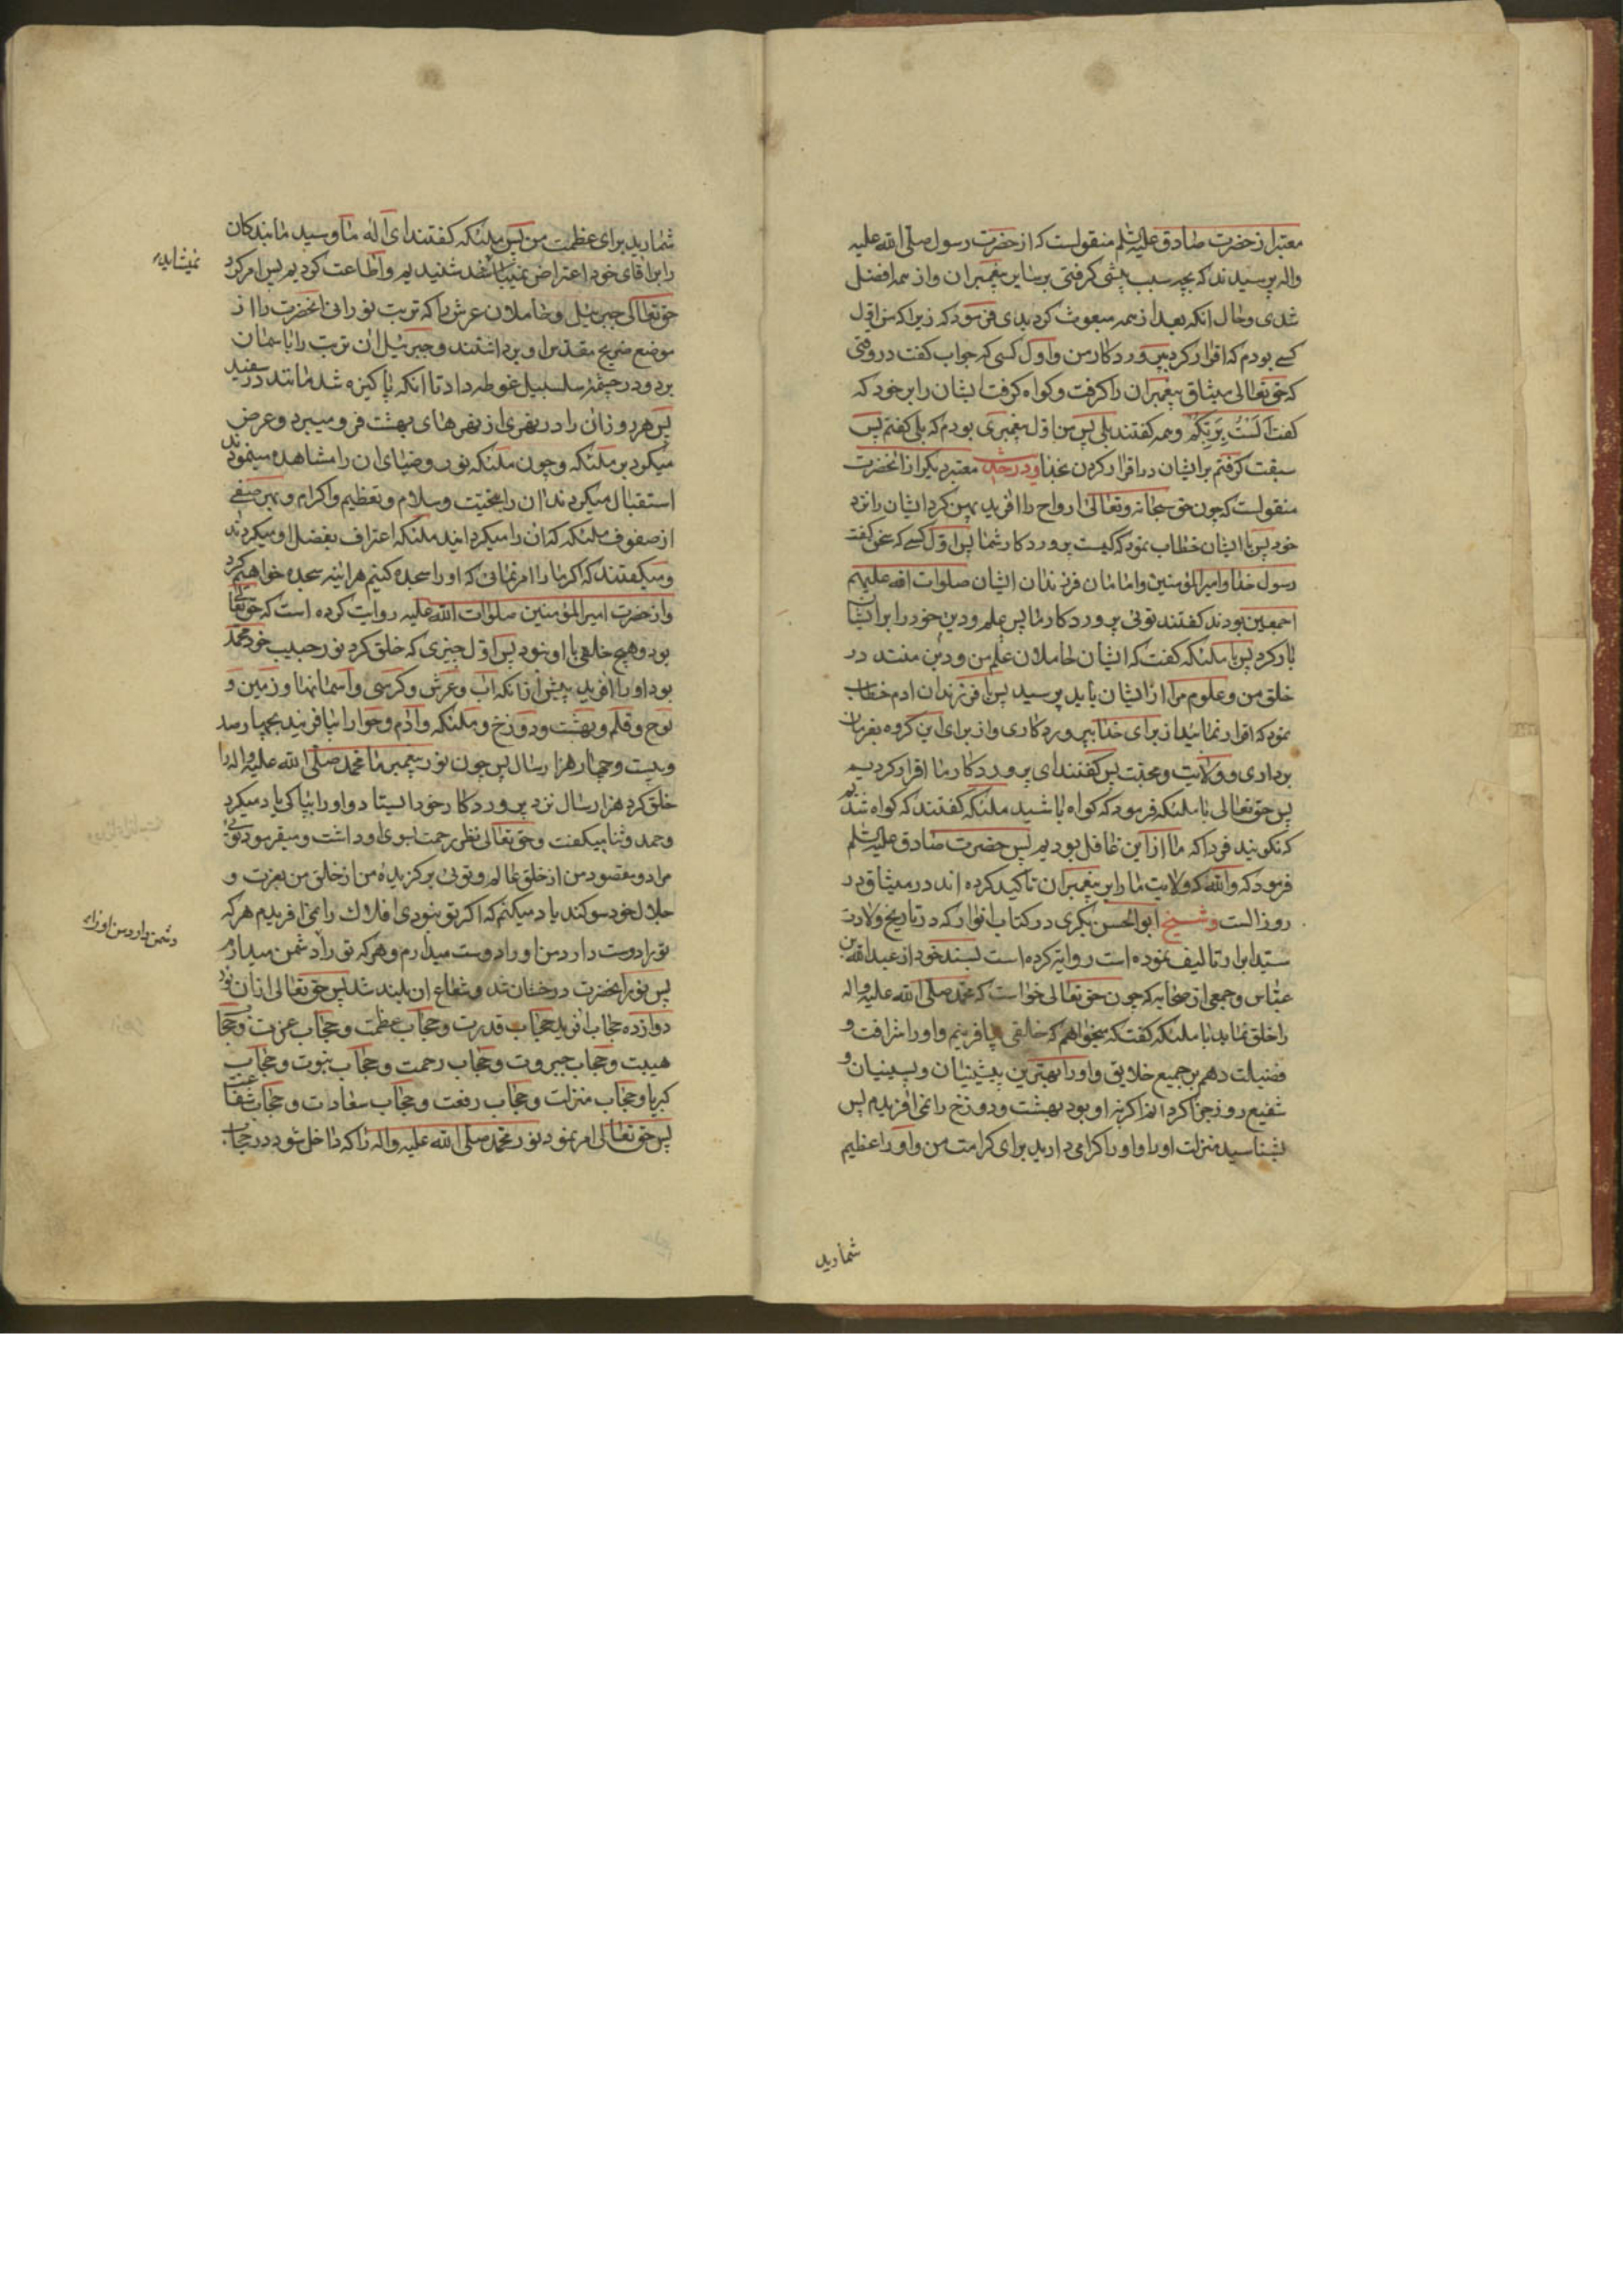 معتبر از حضرت صادق علیه السلم منقولست که از حضرت رسول صلی الله علیه
واله پرسیدند که بچه سبب پیشی گرفتی بر سایر پیغمبران و از همه افضل
شدی وحال انکه بعد از همه مبعوث کردیدی فرمود که زیرا که من اول
کسی بودم که اقرار کرد بپروردکار من و اول کسی که جواب کفت در وقتی
که حق تعالی میثاق پیغمبران را کرفت و کواه کرفت ایشان را بر خود که
کفت اَلَسْتُ بِرَبِّکُمْ وهمه کفتند بلی پس من اول پیغمبری بودم که بلی کفتم پس
سبقت کرفتم بر ایشان در اقرار کردن بخدا ودر حدیث معتبر دیکر از انحضرت
منقولست که چون حق سبحانه وتعالی ارواح را افرید پهن کرد ایشان را نزد
خود پس با ایشان خطاب نمود که کیست پروردکار شما پس اول کسی که سخن کفت
رسول خدا وامیرالمؤمنین وامامان فرزندان ایشان صلوات الله علیهم
اجمعین بودند کفتند توئی پروردکار ما پس علم ودین خود را بر ایشان
بار کرد پس با ملئکه کفت که ایشان حاملان علم من ودین منند در
خلق من وعلوم مرا از ایشان باید پرسید پس با فرزندان ادم خطاب
نمود که اقرار نمائید از برای خدا بپروردکاری واز برای این کروه بفرمان
برداری و ولایت ومحبت پس کفتند ای پروردکار ما اقرار کردیم
پس حق تعالی با ملئکه فرمود که کواه باشید ملئکه کفتند که کواه شدیم
که نکویند فردا که ما از این غافل بودیم پس حضرت صادق علیه السلم
فرمود که والله که ولایت ما را بر پیغمبران تاکید کرده اند در میثاق در
روز الست وشیخ ابوالحسن بکری در کتاب انوار که در تاریخ ولادت
سید ابرار تالیف نموده است روایت کرده است بسند خود از عبدالله بن
عباس وجمعی از صحابه که چون حق تعالی خواست که محمد صلی الله علیه واله
را خلق نماید با ملئکه کفت که میخواهم که خلقی بیافرینم واو را شرافت و
فضیلت دهم بر جمیع خلایق واو را بهترین پیشینیان وپسینیان و
شفیع روز جزا کردانم اکر نه او بود بهشت ودوزخ را نمی افریدم پس
بشناسید منزلت او را واو را کرامی دارید برای کرامت من واو را عظیم
شمارید
شمارید برای عظمت من پس ملئکه کفتند ای اله ما وسید ما بندکان
را بر اقای خود اعتراض نمیباشد شنیدیم واطاعت کردیم پس امر کرد
نمیشاید
حق تعالی جبرئیل وحاملان عرش را که تربت نورانی انحضرت را از
موضع ضریح مقدس او برداشتند وجبرئیل ان تربت را باسمان
برد ودر چشمه سلسبیل غوطه داد تا انکه پاکیزه شد مانند در سفید
پس هر روز ان را در نهری از نهرهای بهشت فرو میبرد وعرض
میکرد بر ملئکه وچون ملئکه نور وضیای ان را مشاهده مینمودند
استقبال میکردند ان را بتحیت وسلام وتعظیم واکرام وبهر صفی
از صفوف ملئکه که ان را میکردانید ملئکه اعتراف بفضل او میکردند
ومیکفتند که اکر ما را امر نمائی که او را سجده کنیم هراینه سجده خواهیم کرد
واز حضرت امیرالمؤمنین صلوات الله علیه روایت کرده است که حق تعالی
بود وهیچ خلقی با او نبود پس اول چیزی که خلق کرد نور حبیب خود محمد
بود او را افرید پیش از انکه اب وعرش وکرسی واسمانها وزمین و
لوح وقلم وبهشت ودوزخ وملئکه وادم وحوا را بیافریند بچهارصد
وبیست وچهار هزار سال پس چون نور پیغمبر ما محمد صلی الله علیه واله را
خلق کرد هزار سال نزد پروردکار خود ایستاد واو را بپاکی یاد میکرد
وحمد وثنا میکفت وحق تعالی نظر رحمت بسوی او داشت ومیفرمود توئی
مراد ومقصود من از خلق عالم وتوئی برکزیده من از خلق من بعزت و
جلال خود سوکند یاد میکنم که اکر تو نبودی افلاک را نمی افریدم هر که
تو را دوست دارد من او را دوست میدارم وهر که تو را دشمن میدارم
دشمن دارد من او را
پس نور انحضرت درخشان شد وشعاع ان بلند شد پس حق تعالی از ان نور
دوازده حجاب افرید حجاب قدرت وحجاب عظمت وحجاب عزت وحجاب
هیبت وحجاب جبروت وحجاب رحمت وحجاب نبوت وحجاب
کبریا وحجاب منزلت وحجاب رفعت وحجاب سعادت وحجاب شفاعت
پس حق تعالی امر نمود نور محمد صلی الله علیه واله را که داخل شود در حجاب